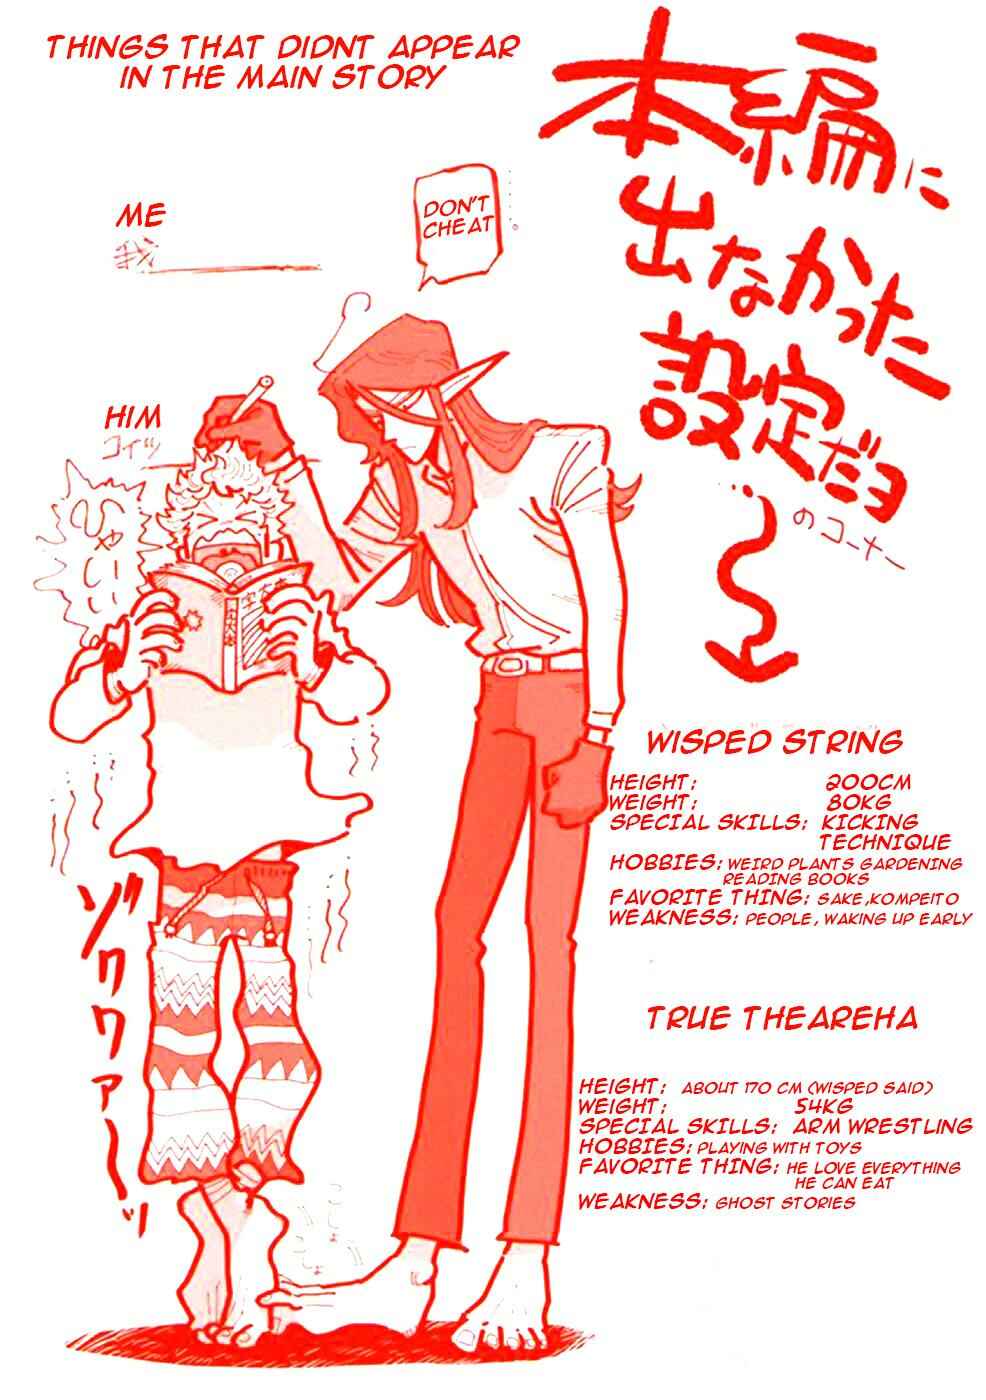 THINGS THAT DIDNT APPEAR
IN THE MAIN STORY
本編に
出なかった
設定だヨ
のコーナー
ME
我
DON'T
CHEAT
HIM
コイツ
ひゃいい
ゾワワァ〜ッ
WISPED STRING
HEIGHT: 200CM
WEIGHT: 80KG
SPECIAL SKILLS: KICKING
TECHNIQUE
HOBBIES: WEIRD PLANTS GARDENING
READING BOOKS
FAVORITE THING: SAKE, KOMPEITO
WEAKNESS: PEOPLE, WAKING UP EARLY
TRUE THEAREHA
HEIGHT: ABOUT 170 CM (WISPED SAID)
WEIGHT: 54KG
SPECIAL SKILLS: ARM WRESTLING
HOBBIES: PLAYING WITH TOYS
FAVORITE THING: HE LOVE EVERYTHING
HE CAN EAT
WEAKNESS: GHOST STORIES